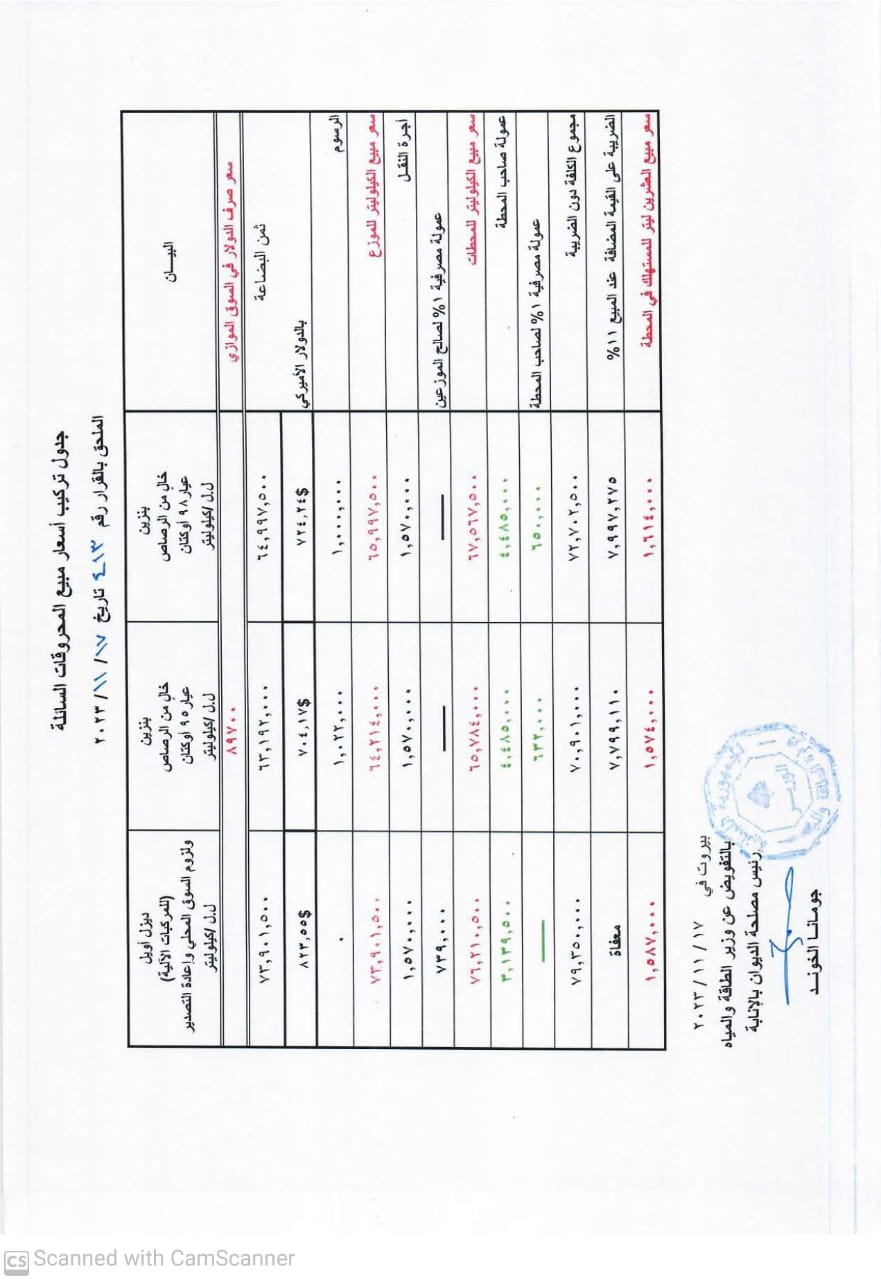 جدول تركيب أسعار مبيع المحروقات السائلة
الملحق بالقرار رقم ٤١٣ تاريخ ١٧/١١/٢٠٢٣
البيـــان
بنزين
خالٍ من الرصاص
عيار ٩٨ أوكتان
ل.ل/كيلوليتر
بنزين
خالٍ من الرصاص
عيار ٩٥ أوكتان
ل.ل/كيلوليتر
ديزل أويل
(للمركبات الآلية)
ولزوم السوق المحلي وإعادة التصدير
ل.ل/كيلوليتر
سعر صرف الدولار في السوق الموازي ٨٩٧٠٠
ثمن البضاعة ٦٤,٩٩٧,٥٠٠ ٦٣,١٩٢,٠٠٠ ٧٣,٩٠١,٥٠٠
بالدولار الأميركي ٧٢٤,٢٤$ ٧٠٤,١٧$ ٨٢٣,٥٥$
الرسوم ١,٠٠٠,٠٠٠ ١,٠٢٢,٠٠٠ ٠
سعر مبيع الكيلوليتر للموزع ٦٥,٩٩٧,٥٠٠ ٦٤,٢١٤,٠٠٠ ٧٣,٩٠١,٥٠٠
أجرة النقـل ١,٥٧٠,٠٠٠ ١,٥٧٠,٠٠٠ ١,٥٧٠,٠٠٠
عمولة مصرفية ١% لصالح الموزعين — — ٧٣٩,٠٠٠
سعر مبيع الكيلوليتر للمحطات ٦٧,٥٦٧,٥٠٠ ٦٥,٧٨٤,٠٠٠ ٧٦,٢١٠,٥٠٠
عمولة صاحب المحطة ٤,٤٨٥,٠٠٠ ٤,٤٨٥,٠٠٠ ٣,١٣٩,٥٠٠
عمولة مصرفية ١% لصاحب المحطة ٦٥٠,٠٠٠ ٦٣٢,٠٠٠ —
مجموع الكلفة دون الضريبة ٧٢,٧٠٢,٥٠٠ ٧٠,٩٠١,٠٠٠ ٧٩,٣٥٠,٠٠٠
الضريبة على القيمة المضافة عند المبيع ١١% ٧,٩٩٧,٢٧٥ ٧,٧٩٩,١١٠ معفاة
سعر مبيع العشرين ليتر للمستهلك في المحطة ١,٦١٤,٠٠٠ ١,٥٧٤,٠٠٠ ١,٥٨٧,٠٠٠
بيروت في ١٧/١١/٢٠٢٣
بالتفويض عن وزير الطاقة والمياه
رئيس مصلحة الديوان بالإنابة
جومانا الخونـد
الوزير
CS Scanned with CamScanner